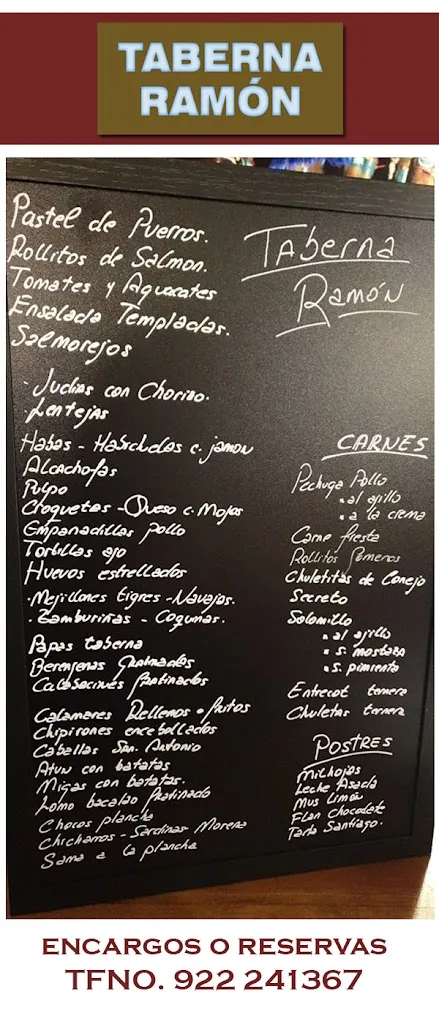 TABERNA
RAMÓN
Pastel de Puerros.
Rollitos de Salmon.
Tomates y Aguacates
Ensalada Templadas.
Salmorejos
· Judias con Chorizo.
· Lentejas
Habas - Habichuelas c. jamon
Alcachofas
Pulpo
Croquetas - Queso c. Mojos
Empanadillas pollo
Tortillas ajo
Huevos estrellados
· Mejillones tigres - Navajas.
· Zamburiñas -
Papas taberna
Berenjenas Gratinadas
Calabacines Gratinados
Calamares Rellenos o fritos
Chipirones encebollados
Caballas San Antonio
Atun con batatas
Migas con batatas.
Lomo bacalao Gratinado
Chocos plancha
Chicharros - Sardinas Morena
Sama a la plancha
Taberna
Ramón
CARNES
Pechuga Pollo
· al ajillo
· a la crema
Carne fiesta
Rollitos
Chuletitas de Conejo
Secreto
Solomillo
· al ajillo
· s. mostaza
· s. pimienta
Entrecot ternera
Chuletas ternera
POSTRES
Milhojas
Leche Asada
Mus limón
Flan Chocolate
Tarta Santiago.
ENCARGOS O RESERVAS
TFNO. 922 241367